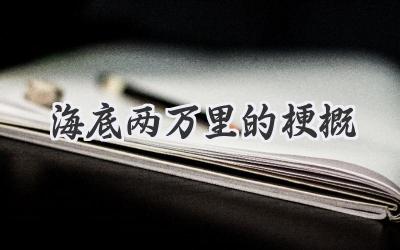 海底两万里的梗概